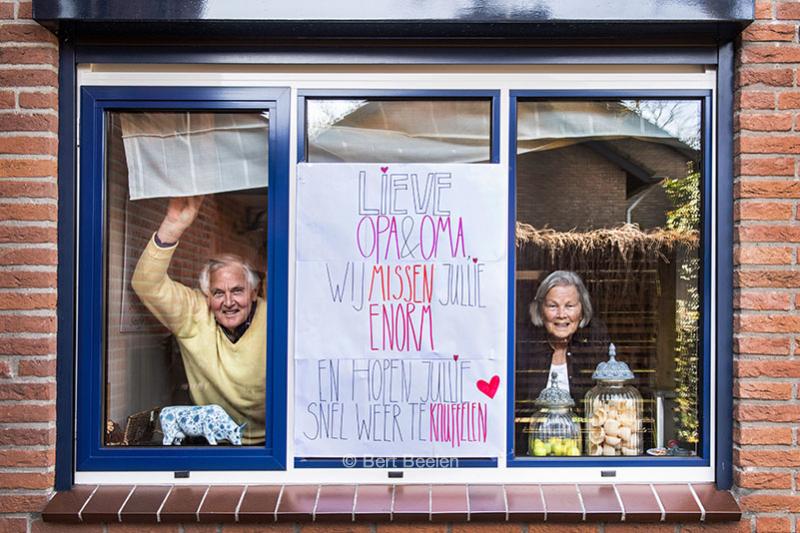 LIEVE
OPA&OMA,
WIJ MISSEN JULLIE
ENORM
EN HOPEN JULLIE
SNEL WEER TE KNUFFELEN
© Bert Beelen